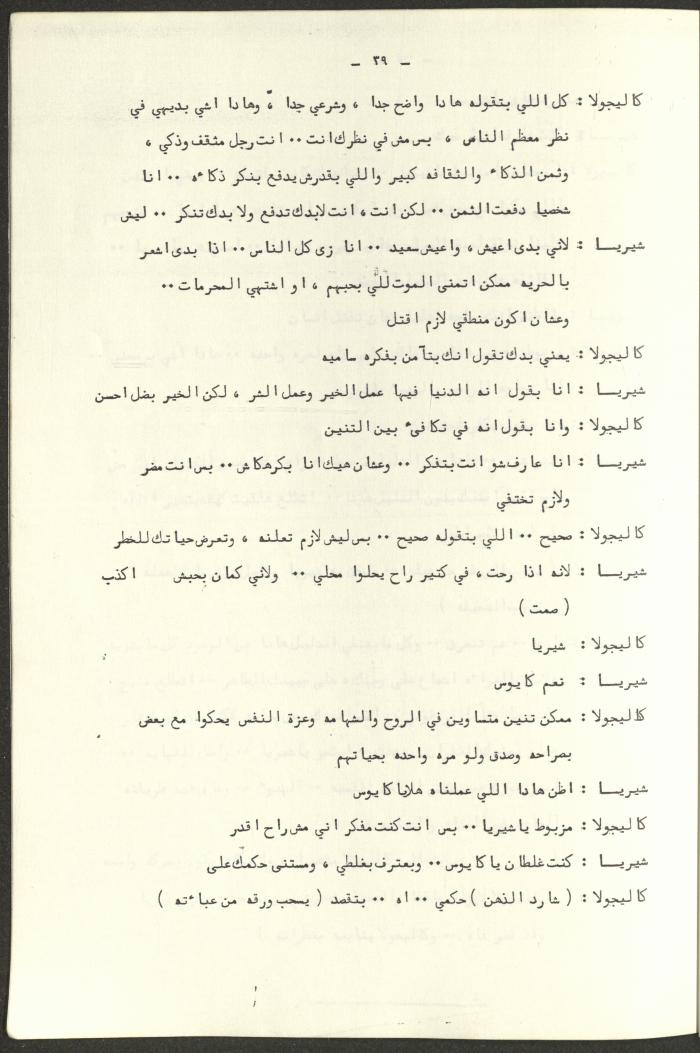 - ٣٩ -
كاليجولا : كل اللي بتقوله هادا واضح جدا ، وشرعي جدا ، وهادا اشي بديهي في
نظر معظم الناس ، بس مش في نظرك انت ٠٠ انت رجل مثقف وذكي ،
وثمن الذكاء والثقافه كبير واللي بقدرش يدفع بنكر ذكاءه ٠٠ انا
شخصيا دفعت الثمن ٠٠ لكن انت ، انت لابدك تدفع ولا بدك تنكر ٠٠ ليش
شيريـــا : لاني بدى اعيش ، واعيش سعيد ٠٠ انا زى كل الناس ٠٠ اذا بدى اشعر
بالحريه ممكن اتمنى الموت للّي بحبهم ، او اشتهي المحرمات ٠٠
وعشان اكون منطقي لازم اقتل
كاليجولا : يعني بدك تقول انك بتآمن بفكره ساميه
شيريـــا : انا بقول انه الدنيا فيها عمل الخير وعمل الشر ، لكن الخير بضل احسن
كاليجولا : وانا بقول انه في تكافىء بين التنين
شيريـــا : انا عارف شو انت بتفكر ٠٠ وعشان هيك انا بكرهكاش ٠٠ بس انت مضر
ولازم تختفي
كاليجولا : صحيح ٠٠ اللي بتقوله صحيح ٠٠ بس ليش لازم تعلنه ، وتعرض حياتك للخطر
شيريـــا : لانه اذا رحت ، في كتير راح يحلوا محلي ٠٠ ولاني كمان بحبش اكذب
( صمت )
كاليجولا : شيريا
شيريـــا : نعم كايوس
كاليجولا : ممكن تنين متساوين في الروح والشهامه وعزة النفس يحكوا مع بعض
بصراحه وصدق ولو مره واحده بحياتهم
شيريـــا : اظن هادا اللي عملناه هلايا كايوس
كاليجولا : مزبوط يا شيريا ٠٠ بس انت كنت مفكر اني مش راح اقدر
شيريـــا : كنت غلطان يا كايوس ٠٠ وبعترف بغلطي ، ومستنى حكمك على
كاليجولا : ( شارد الذهن ) حكمي ٠٠ اه ٠٠ بتقصد ( يسحب ورقه من عباءته )